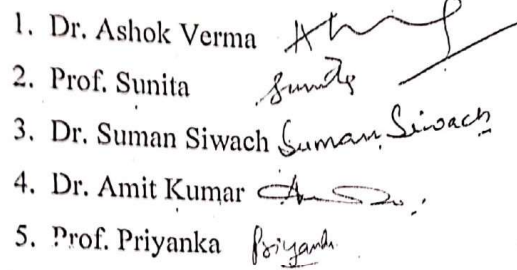 1. Dr. Ashok Verma
2. Prof. Sunita Sunita
3. Dr. Suman Siwach Suman Siwach
4. Dr. Amit Kumar
5. Prof. Priyanka Priyanka